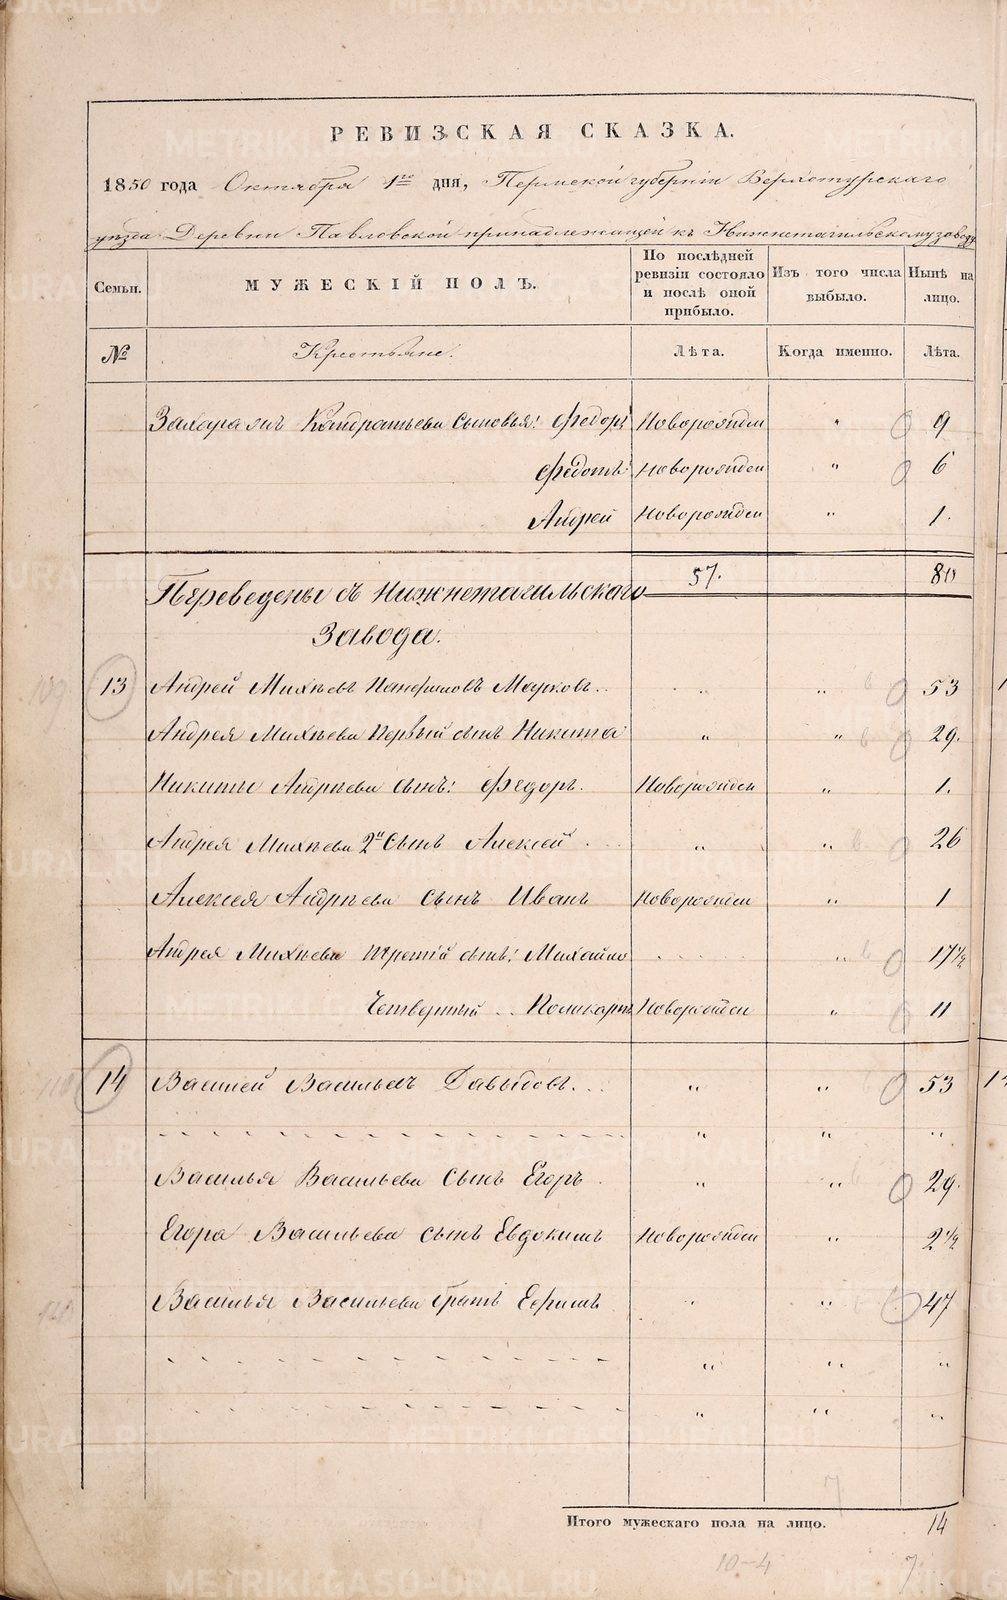 РЕВИЗСКАЯ СКАЗКА.
1850 года Октября 1го дня, Пермской губернии Верхотурскаго
уѣзда Деревни Павловской принадлежащей къ Нижнетагильскому заводу
Семьи.
МУЖЕСКІЙ ПОЛЪ.
По послѣдней ревизіи состояло и послѣ оной прибыло.
Изъ того числа выбыло.
Нынѣ на лицо.
№ Крестьяне. Лѣта. Когда именно. Лѣта.
Кондратьева Сыновья: Федоръ Новорожден " 9
Федотъ Новорожден " 6
Андрей Новорожден " 1.
57. 80
Переведены съ Нижнетагильскаго
Завода.
13 Андрей Михѣевъ Марковъ " " 53
Андрея Михѣева первый сынъ Никита " " 29.
Никиты Андрѣева сынъ: Федоръ. Новорожден " 1.
Андрея Михѣева 2й Сынъ Алексей " " 26
Алексея Андрѣева сынъ Иванъ Новорожден " 1
Андрея Михѣева третій сынъ: Михайло " 17½
Четвертый Поликарпъ Новорожден " 11
14 Василей Васильевъ Давыдовъ " " 53
" " "
Василья Васильева сынъ Егоръ " " 29.
Егора Васильева сынъ Евдокимъ Новорожден " 2½
Василья Васильева братъ Ефимъ " " 47
" " "
" " "
7
Итого мужескаго пола на лицо. 14
10-4 7
METRIKI.GASO-URAL.RU